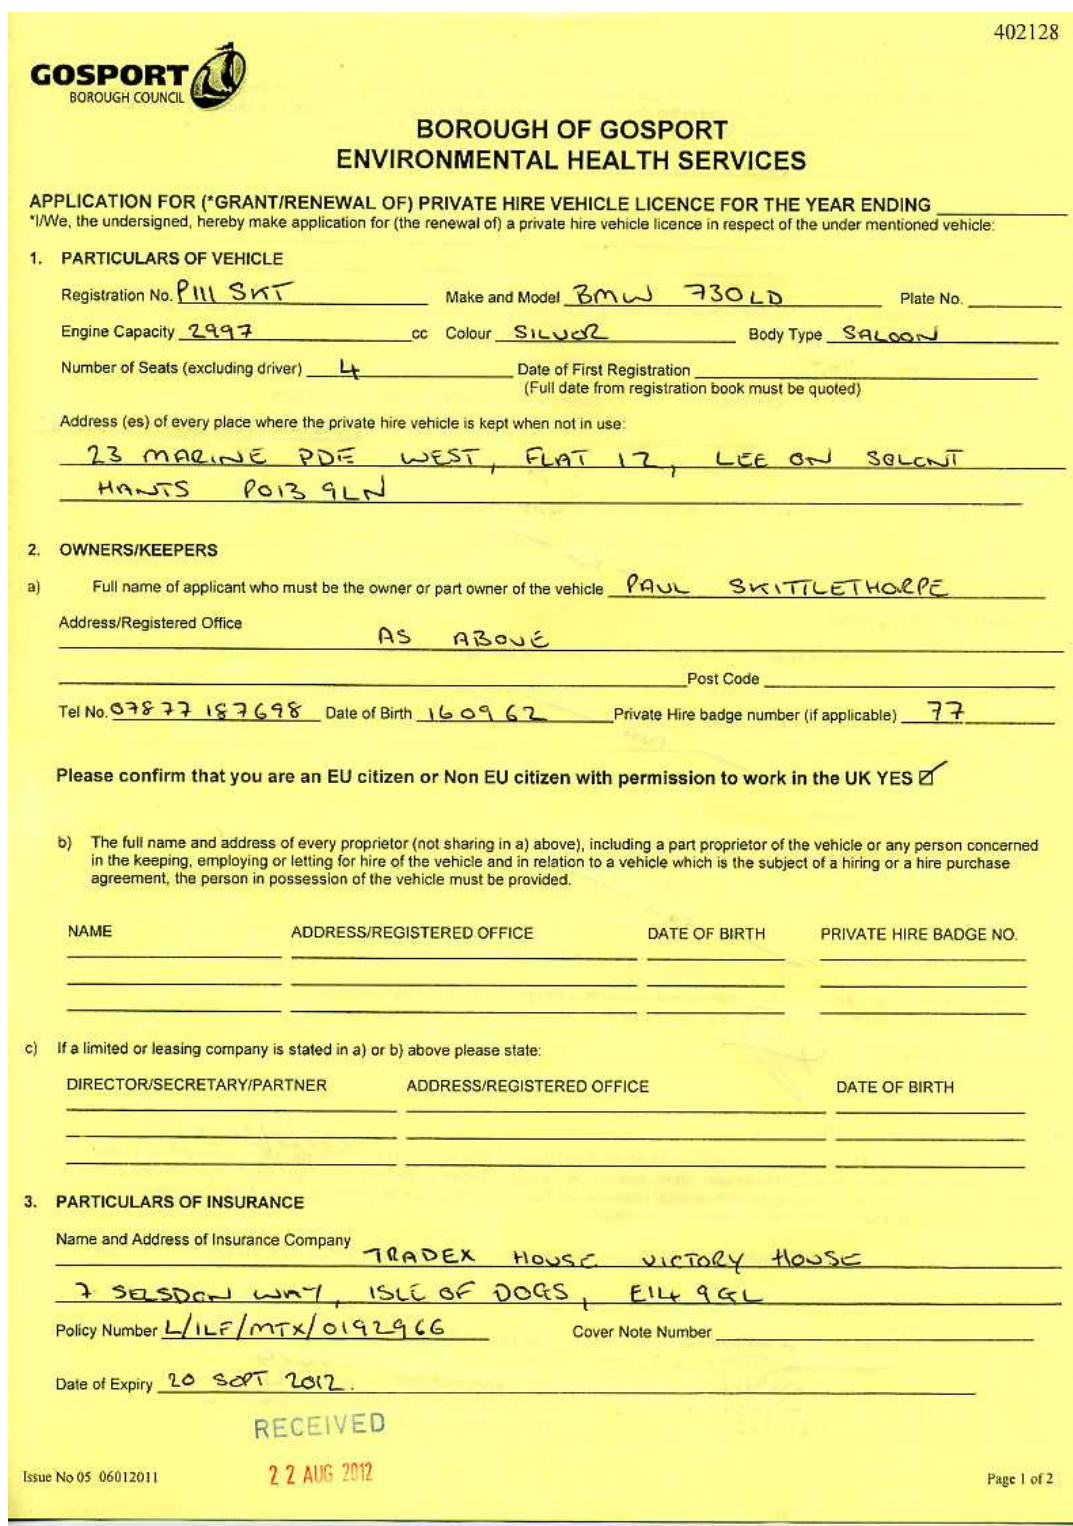 402128
GOSPORT
BOROUGH COUNCIL
BOROUGH OF GOSPORT
ENVIRONMENTAL HEALTH SERVICES
APPLICATION FOR (*GRANT/RENEWAL OF) PRIVATE HIRE VEHICLE LICENCE FOR THE YEAR ENDING
*I/We, the undersigned, hereby make application for (the renewal of) a private hire vehicle licence in respect of the under mentioned vehicle:
1. PARTICULARS OF VEHICLE
Registration No. P111 SKT Make and Model BMW 730LD Plate No.
Engine Capacity 2997 cc Colour SILVER Body Type SALOON
Number of Seats (excluding driver) 4 Date of First Registration
(Full date from registration book must be quoted)
Address (es) of every place where the private hire vehicle is kept when not in use:
23 MARINE PDE WEST, FLAT 12, LEE ON SOLENT
HANTS PO13 9LN
2. OWNERS/KEEPERS
a) Full name of applicant who must be the owner or part owner of the vehicle PAUL SKITTLETHORPE
Address/Registered Office AS ABOVE
Post Code
Tel No. 07877 187698 Date of Birth 160962 Private Hire badge number (if applicable) 77
Please confirm that you are an EU citizen or Non EU citizen with permission to work in the UK YES ☑
b) The full name and address of every proprietor (not sharing in a) above), including a part proprietor of the vehicle or any person concerned
in the keeping, employing or letting for hire of the vehicle and in relation to a vehicle which is the subject of a hiring or a hire purchase
agreement, the person in possession of the vehicle must be provided.
NAME ADDRESS/REGISTERED OFFICE DATE OF BIRTH PRIVATE HIRE BADGE NO.
c) If a limited or leasing company is stated in a) or b) above please state:
DIRECTOR/SECRETARY/PARTNER ADDRESS/REGISTERED OFFICE DATE OF BIRTH
3. PARTICULARS OF INSURANCE
Name and Address of Insurance Company TRADEX HOUSE VICTORY HOUSE
7 SELSDON WAY, ISLE OF DOGS, E14 9GL
Policy Number L/ILF/MTX/0192966 Cover Note Number
Date of Expiry 20 SEPT 2012.
RECEIVED
22 AUG 2012
Issue No 05 06012011 Page 1 of 2